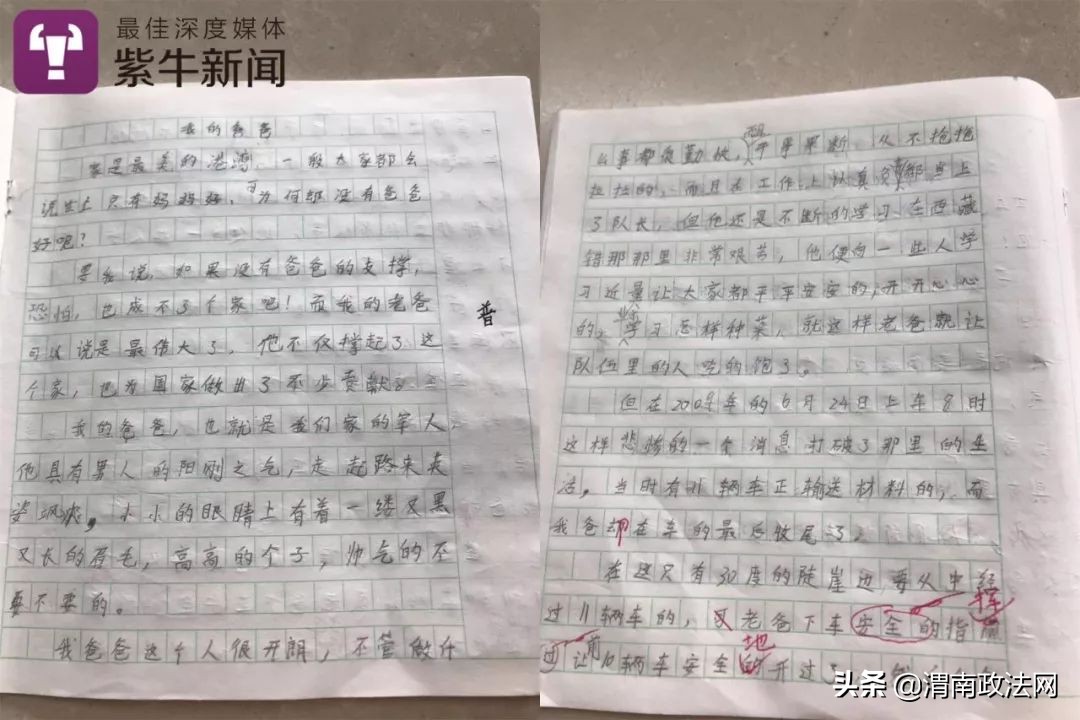 最佳深度媒体
紫牛新闻
我的爸爸
家是最美的港湾，一般大家都会
说世上只有妈妈好，可为何却没有爸爸
好呢？
要我说，如果没有爸爸的支撑，
恐怕，也成不了个家吧！而我的老爸
可以说是最伟大了，他不仅撑起了这
个家，也为国家做出了不少贡献。
我的爸爸，也就是我们家的军人，
他具有男人的阳刚之气，走起路来英
姿飒爽，小小的眼睛上有着一缕又黑
又长的眉毛，高高的个子，帅气的不
要不要的。
我爸爸这个人很开朗，不管做什
普
么事都很勤破，干事果断，从不拖拖
拉拉的，而且在工作上认真负责都当上
了队长，但他还是不断的学习，在西藏
错那那里非常艰苦，他便向一些人学
习近量让大家都平平安安的，开开心心
的。学习怎样种菜，就这样老爸就让
队伍里的人吃的饱了。
但在2009年的6月24日上午8时
这样悲惨的一个消息打破了那里的生
活。当时有11辆车正输送材料的，而
我爸却在车的最后收尾了。
在这只有30度的陡崖边要从中经
过11辆车的，又老爸下车安全的指挥
让前10辆车安全地的开过了
头条@渭南政法网